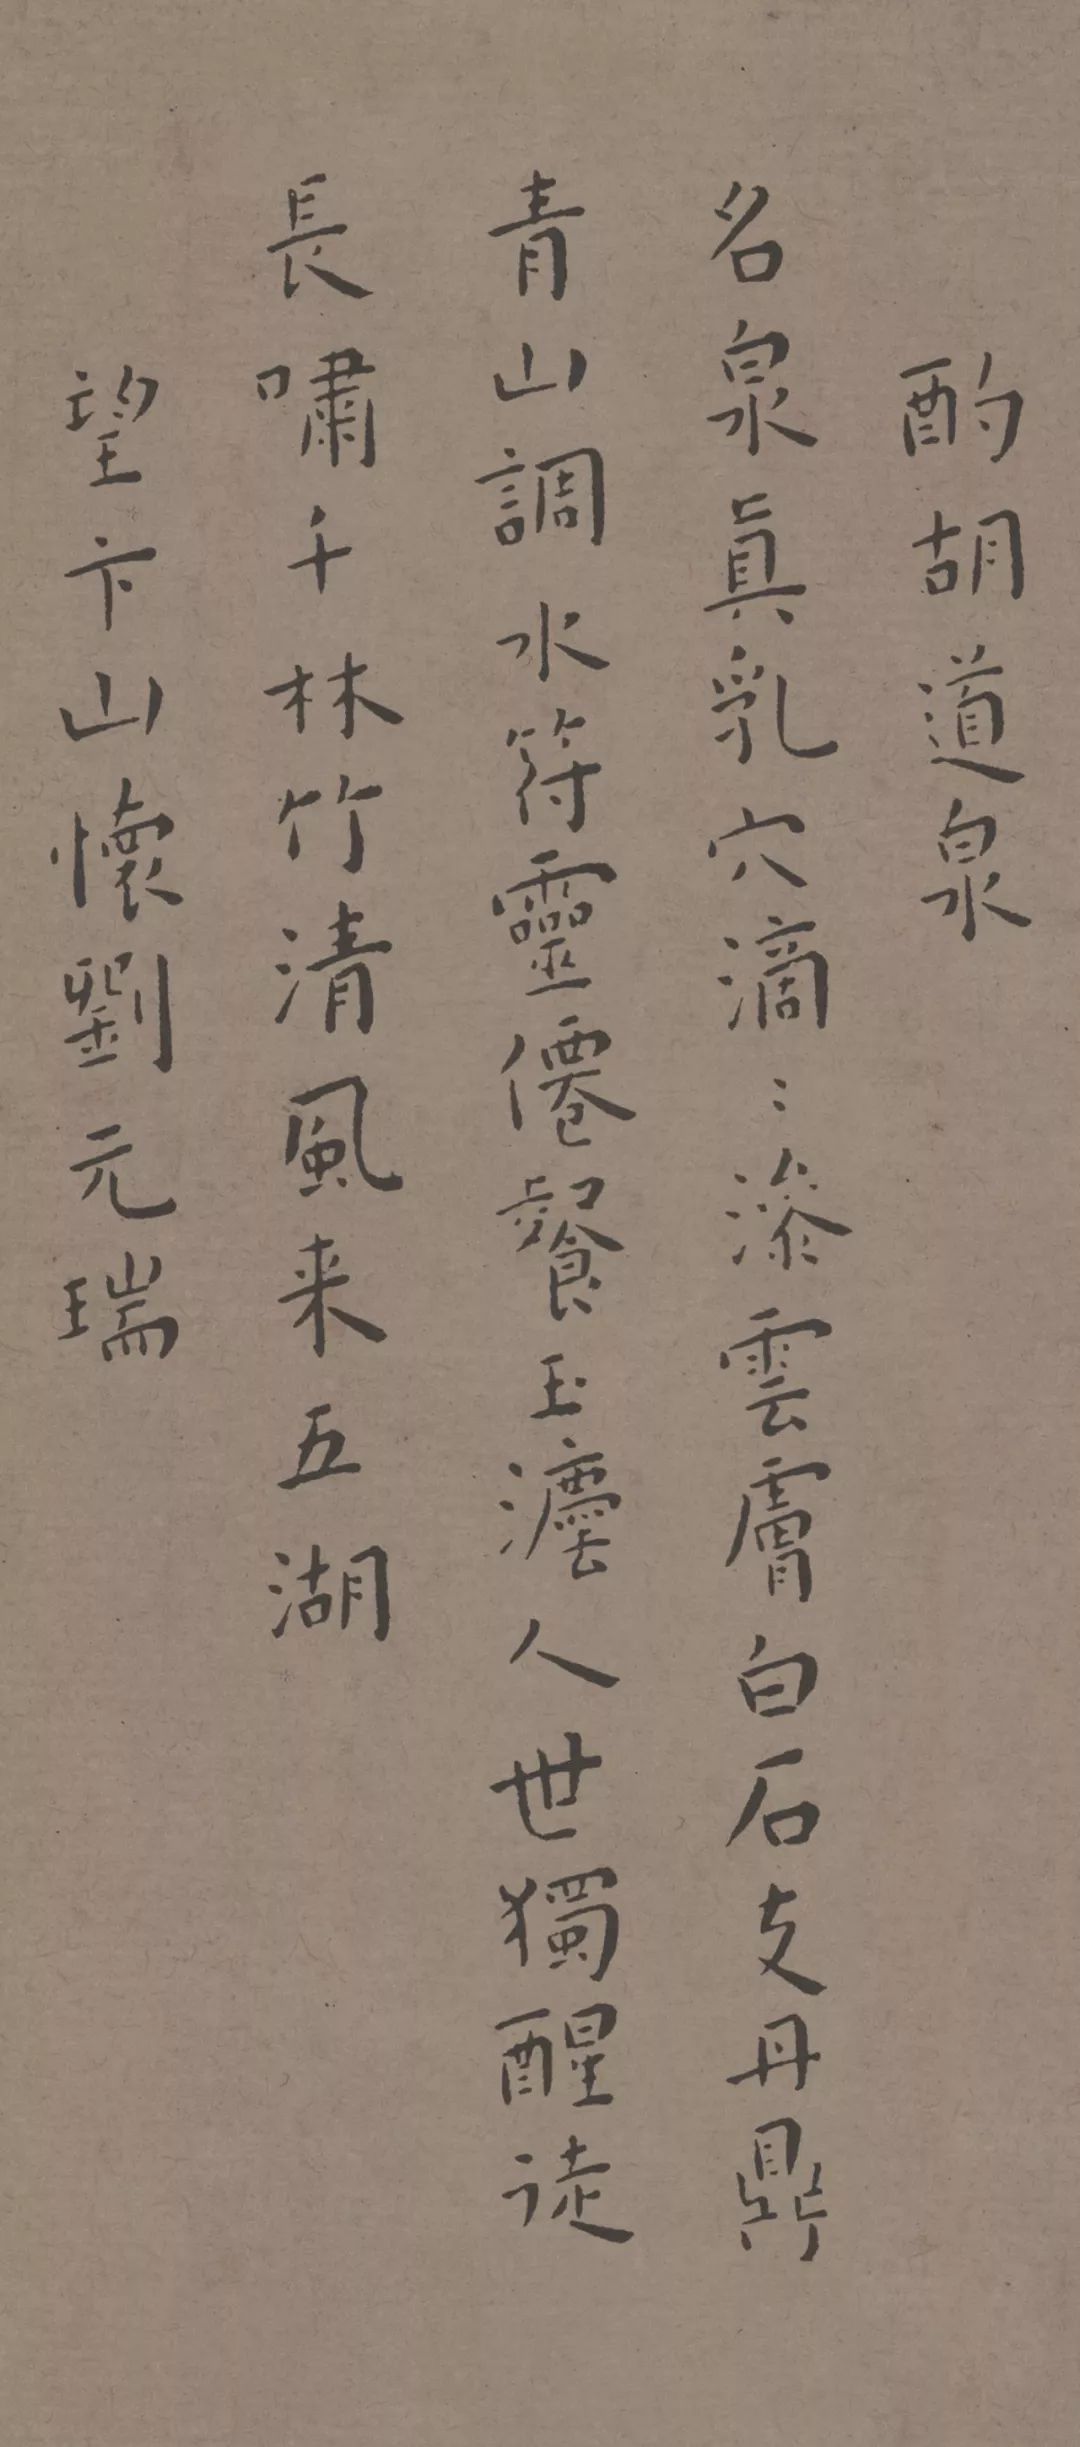 酌胡道泉
名泉真乳穴滴〻滲雲膚白石支丹鼎
青山調水符靈僊餐玉瀣人世獨醒徒
長嘯千林竹清風来五湖
望卞山懷劉元瑞